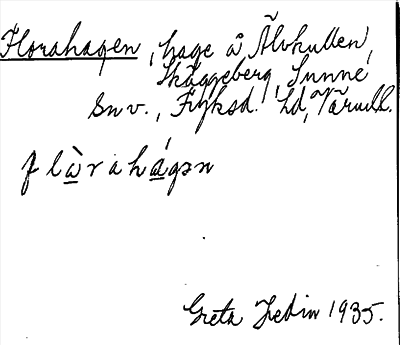 Florahagen, hage å Älvkullen,
Skäggeberg, Sunne
sn v., Fryksd. hd, Värmll.
flàrahágən
Greta Hedin 1935.